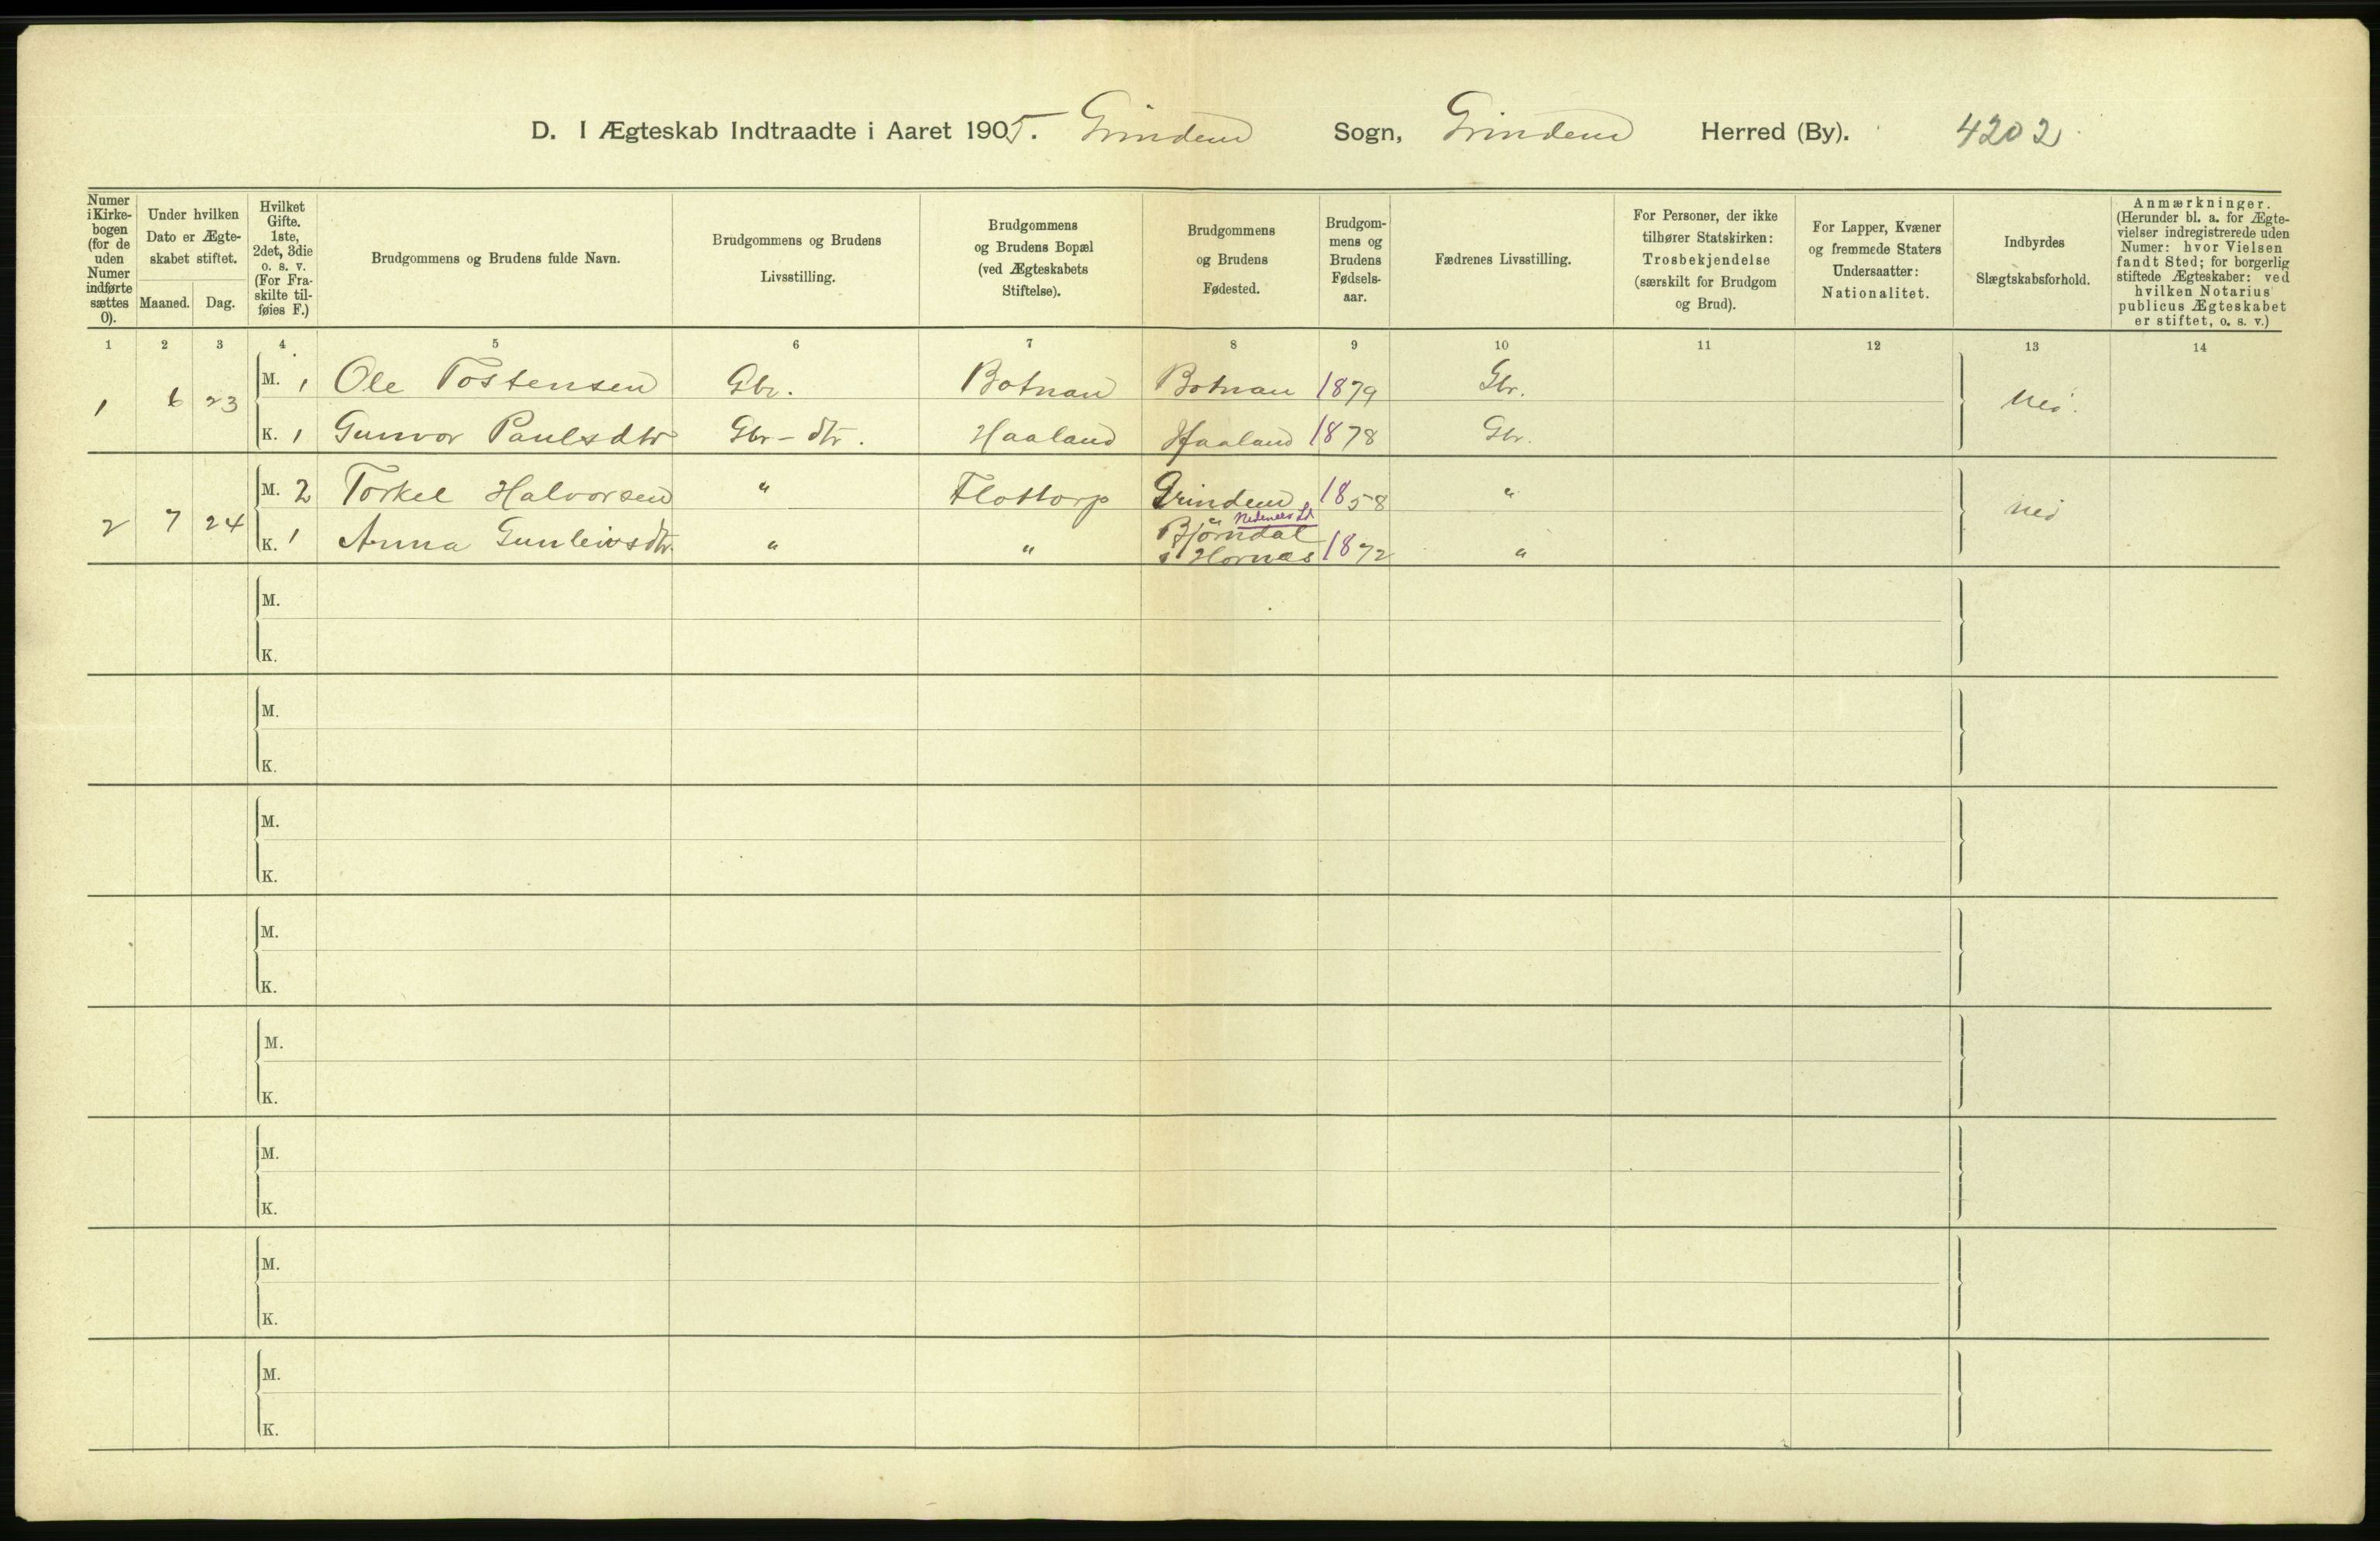 D. I Ægteskab Indtraadte i Aaret 1905. Grindem Sogn, Grindem Herred (By). 4202
Numer i Kirke-bogen (for de uden Numer indførte sættes 0).
Under hvilken Dato er Ægte-skabet stiftet.
Maaned. Dag.
Hvilket Gifte. 1ste, 2det, 3die o. s. v. (For Fra-skilte til-føies F.)
Brudgommens og Brudens fulde Navn.
Brudgommens og Brudens Livsstilling.
Brudgommens og Brudens Bopæl (ved Ægteskabets Stiftelse).
Brudgommens og Brudens Fødested.
Brudgom-mens og Brudens Fødsels-aar.
Fædrenes Livsstilling.
For Personer, der ikke tilhører Statskirken: Trosbekjendelse (særskilt for Brudgom og Brud).
For Lapper, Kvæner og fremmede Staters Undersaatter: Nationalitet.
Indbyrdes Slægtskabsforhold.
Anmærkninger. (Herunder bl. a. for Ægte-vielser indregistrerede uden Numer: hvor Vielsen fandt Sted; for borgerlig stiftede Ægteskaber: ved hvilken Notarius publicus Ægteskabet er stiftet, o. s. v.)
1 2 3 4 5 6 7 8 9 10 11 12 13 14
1 6 23 M. 1 Ole Tostensen Gbr. Botnan Botnan 1879 Gbr. Nei.
K. 1 Gunvor Paulsdtr Gbr-dtr. Haaland Haaland 1878 Gbr.
2 7 24 M. 2 Torkel Halvorsen " Flottorp Grindem 1858 " Nei
K. 1 Anna Gunleivsdtr. " " Bjørndal Nedenes 1872 "
i Hornæs
M.
K.
M.
K.
M.
K.
M.
K.
M.
K.
M.
K.
M.
K.
M.
K.